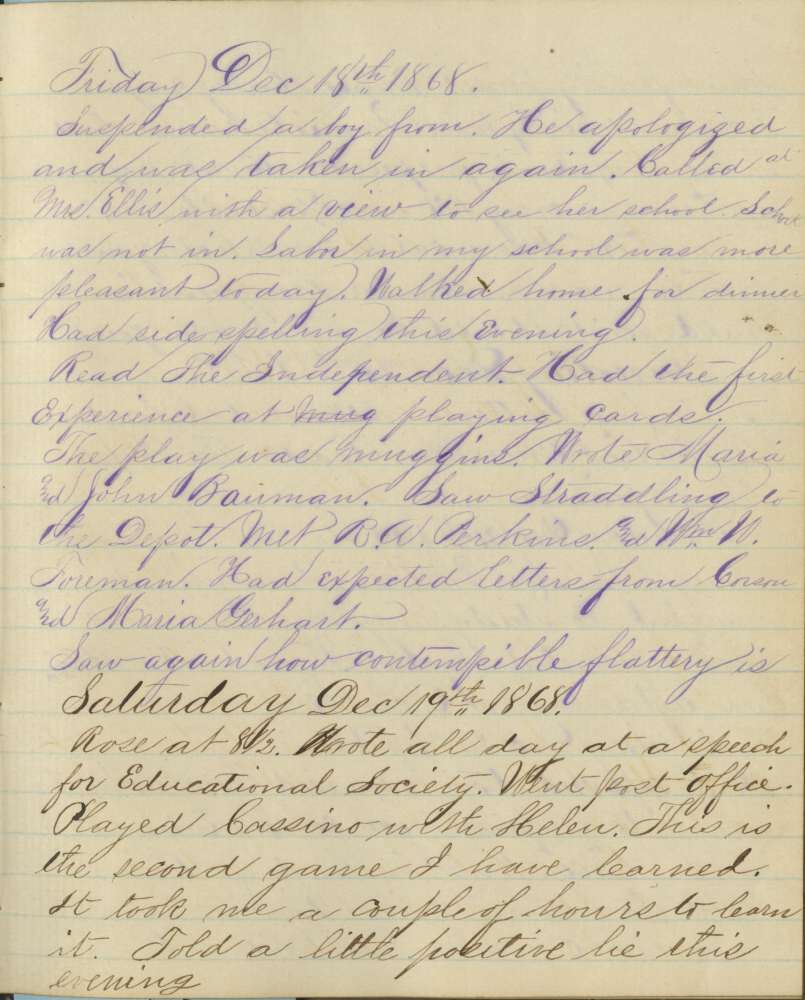 Friday Dec 18th 1868.
Suspended a boy from. He apologized
and was taken in again. Called at
Mrs. Ellis with a view to see her school. School
was not in. Labor in my school was more
pleasant today. Walked home for dinner
Had side spelling this evening.
Read The Independent. Had the first
Experience at mug playing cards.
The play was muggins. Wrote Maria
and John Bauman. Saw Straddling to
the Depot. Met R.A. Perkins. and Wm W.
Foreman. Had expected letters from Corson
and Maria Gerhart.
Saw again how contempible flattery is
Saturday Dec 19th 1868.
Rose at 8 1/2. Wrote all day at a speech
for Educational Society. Went post office.
Played Cassino with Helen. This is
the second game I have learned.
It took me a couple of hours to learn
it. Told a little positive lie this
evening